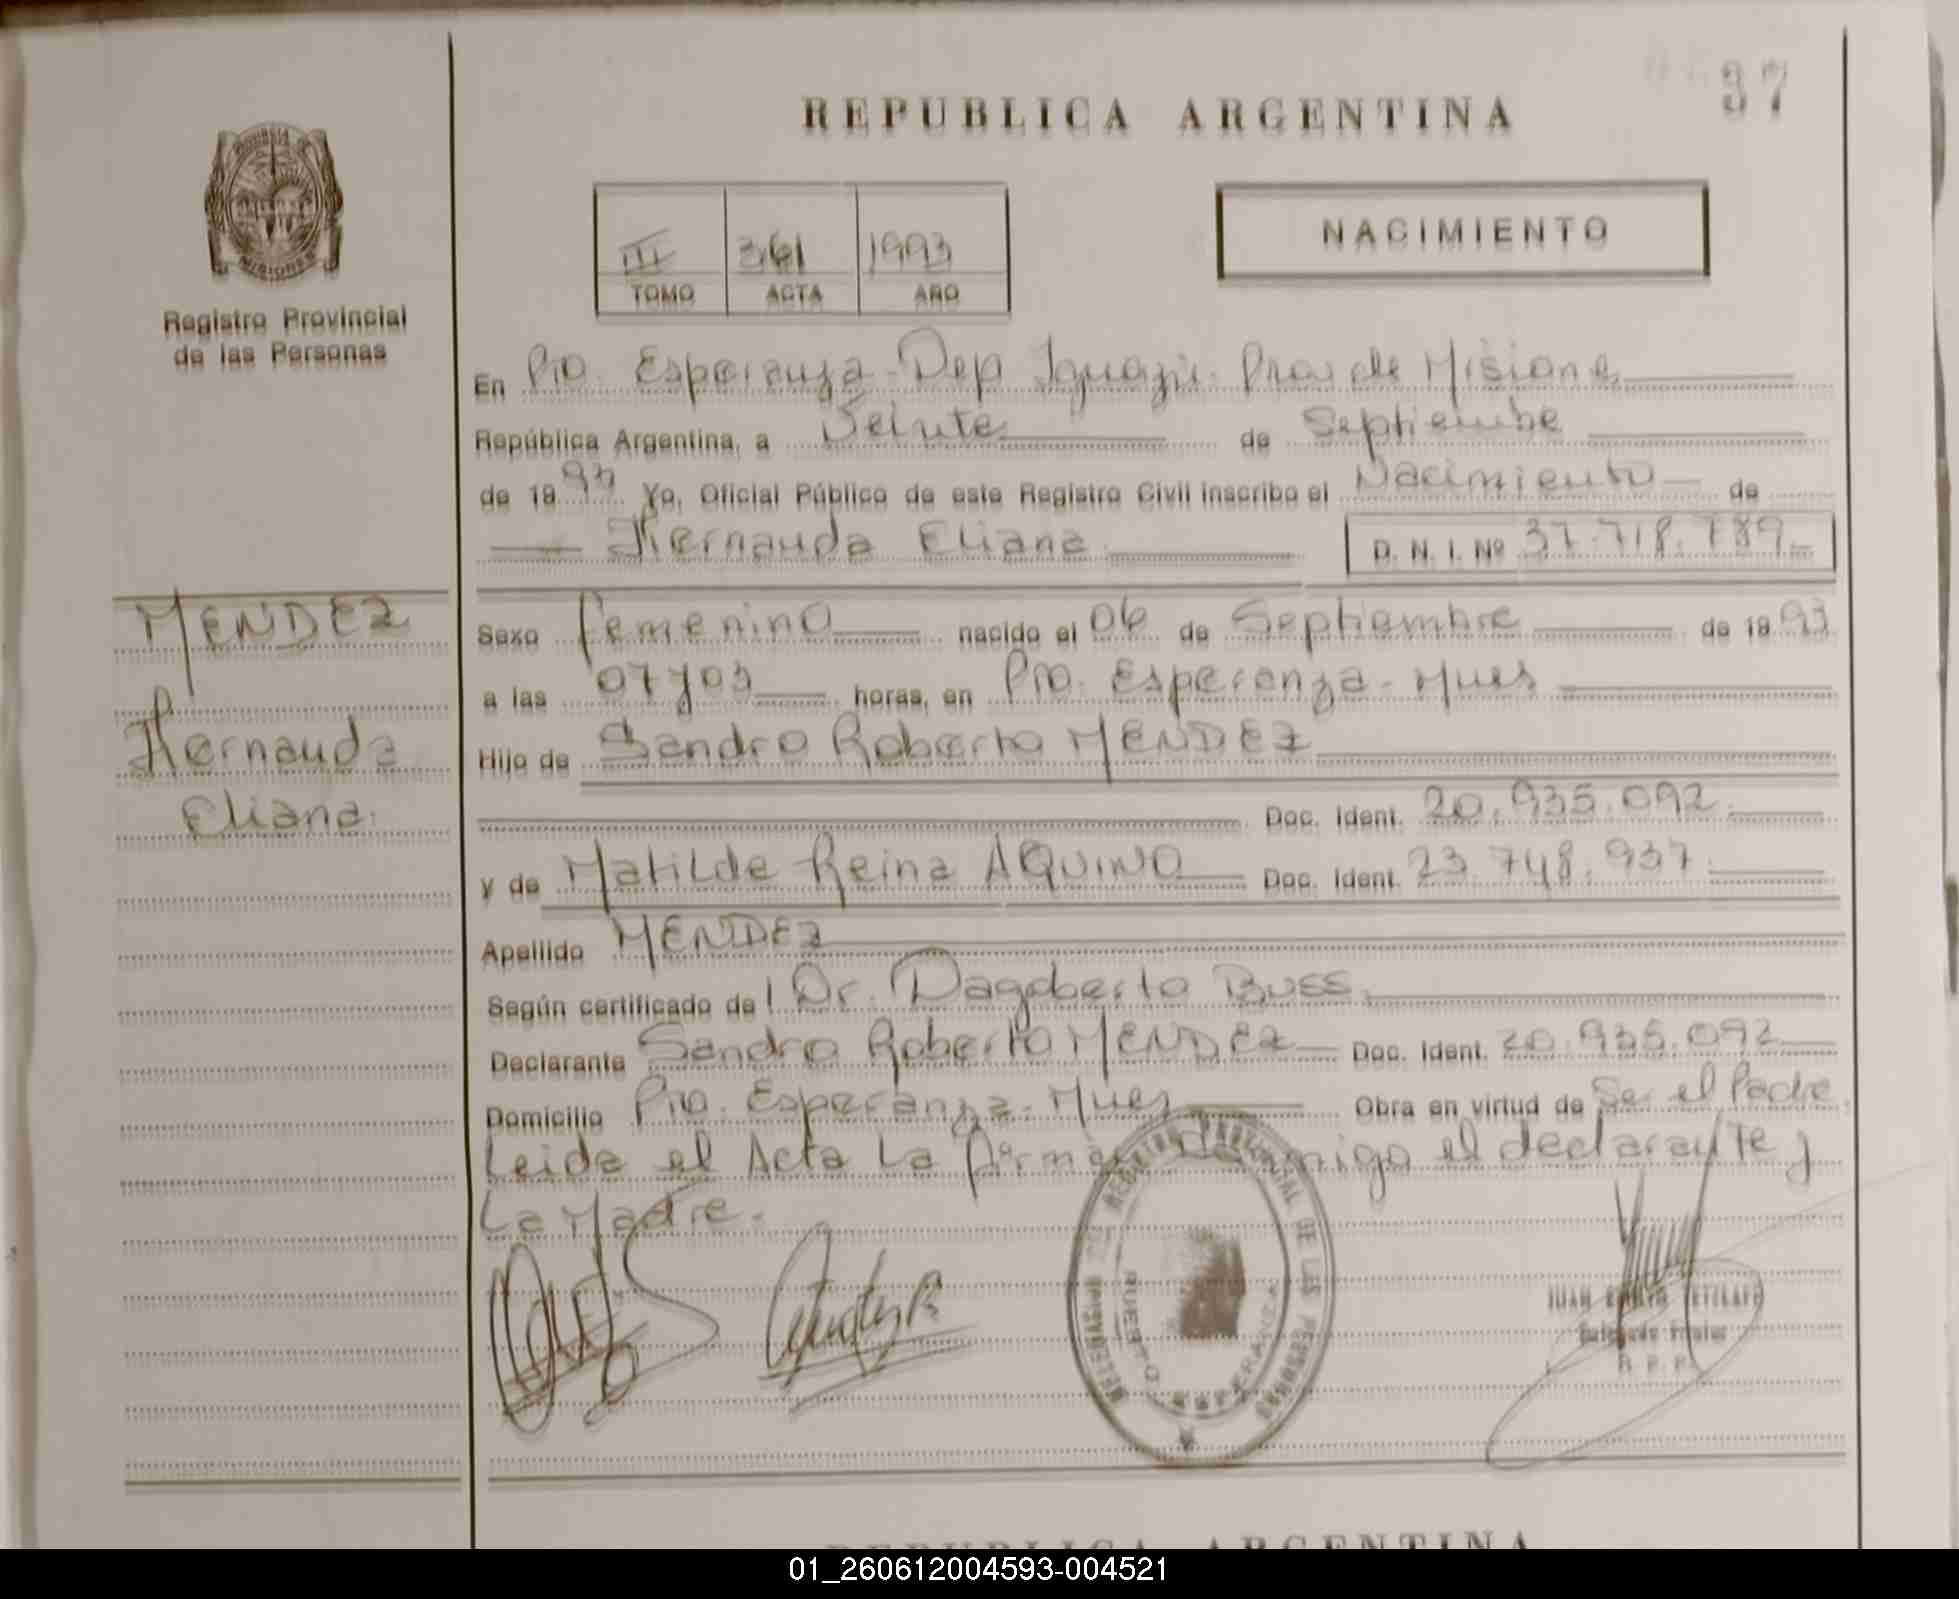 37
REPUBLICA ARGENTINA
PROVINCIA
MISIONES
Registro Provincial
de las Personas
III 361 1993
TOMO ACTA AÑO
NACIMIENTO
En Pto. Esperanza - Dep Iguazú. Prov de Misiones
República Argentina, a Veinte de Septiembre
de 19 93 Yo, Oficial Público de este Registro Civil inscribo el Nacimiento de
Hernanda Eliana D. N. I. Nº 37.718.789
MENDEZ
Hernanda
Eliana.
Sexo femenino nacido el 06 de Septiembre de 19 93
a las 07 y 03 horas, en Pto. Esperanza - Mnes
Hijo de Sandro Roberto MENDEZ
Doc. Ident. 20.935.092
y de Matilde Reina AQUINO Doc. Ident. 23.748.937
Apellido MENDEZ
Según certificado de l Dr. Dagoberto Buss.
Declarante Sandro Roberto MENDEZ Doc. Ident. 20.935.092
Domicilio Pto. Esperanza - Mnes Obra en virtud de Ser el Padre
Leida el Acta La firman conmigo el declarante y
La Madre.
REGISTRO PROVINCIAL DE LAS PERSONAS
PUERTO ESPERANZA
JUAN
R. P. P.
REPUBLICA ARGENTINA
01_260612004593-004521